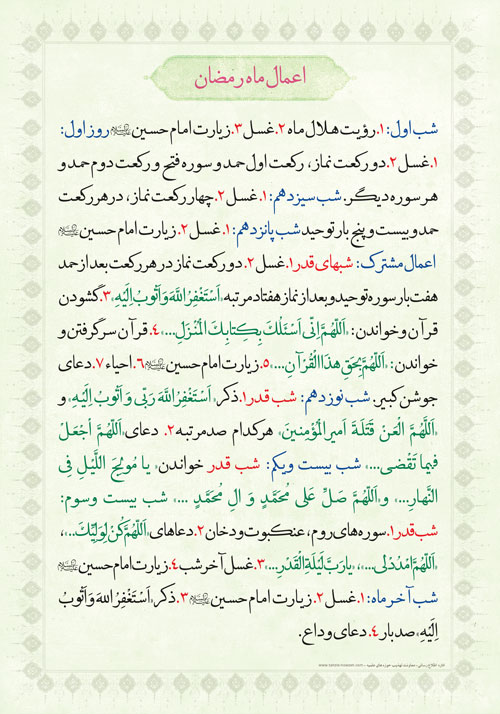 اعمال ماه رمضان
شب اول: ۱. رؤیت هلال ماه ۲. غسل ۳. زیارت امام حسین علیه‌السلام روز اول:
۱. غسل ۲. دو رکعت نماز، رکعت اول حمد و سوره فتح و رکعت دوم حمد و
هر سوره دیگر. شب سیزدهم: ۱. غسل ۲. چهار رکعت نماز، در هر رکعت
حمد و بیست و پنج بار توحید شب پانزدهم: ۱. غسل ۲. زیارت امام حسین علیه‌السلام
اعمال مشترک: شبهای قدر ۱. غسل ۲. دو رکعت نماز در هر رکعت بعد از حمد
هفت بار سوره توحید و بعد از نماز هفتاد مرتبه «اَسْتَغْفِرُ اللهَ وَ اَتُوبُ اِلَیْهِ» ۳. گشودن
قرآن و خواندن: «اَللّهُمَّ اِنّی اَسْئَلُكَ بِكِتابِكَ الْمُنْزَلِ...» ۴. قرآن سر گرفتن و
خواندن: «اَللّهُمَّ بِحَقِّ هذَا الْقُرْآنِ...» ۵. زیارت امام حسین علیه‌السلام ۶. احیاء ۷. دعای
جوشن کبیر. شب نوزدهم: شب قدر ۱. ذکر «اَسْتَغْفِرُ اللهَ رَبّی وَ اَتُوبُ اِلَیْهِ» و
«اَللّهُمَّ الْعَنْ قَتَلَةَ اَمیرِ الْمُؤْمِنینَ» هرکدام صد مرتبه ۲. دعای «اَللّهُمَّ اجْعَلْ
فیما تَقْضی...» شب بیست و یکم: شب قدر خواندن «یا مُولِجَ اللَّیْلِ فِی
النَّهارِ...» و «اَللّهُمَّ صَلِّ عَلی مُحَمَّدٍ وَ الِ مُحَمَّدٍ ...» شب بیست و سوم:
شب قدر ۱. سوره‌های روم، عنکبوت و دخان ۲. دعاهای «اَللّهُمَّ كُنْ لِوَلِیِّكَ...»،
«اَللّهُمَّ امْدُدْ لی...»، «یا رَبَّ لَیْلَةِ الْقَدْرِ...» ۳. غسل آخر شب ۴. زیارت امام حسین علیه‌السلام
شب آخر ماه: ۱. غسل ۲. زیارت امام حسین علیه‌السلام ۳. ذکر «اَسْتَغْفِرُ اللهَ وَ اَتُوبُ
اِلَیْهِ» صد بار ۴. دعای وداع.